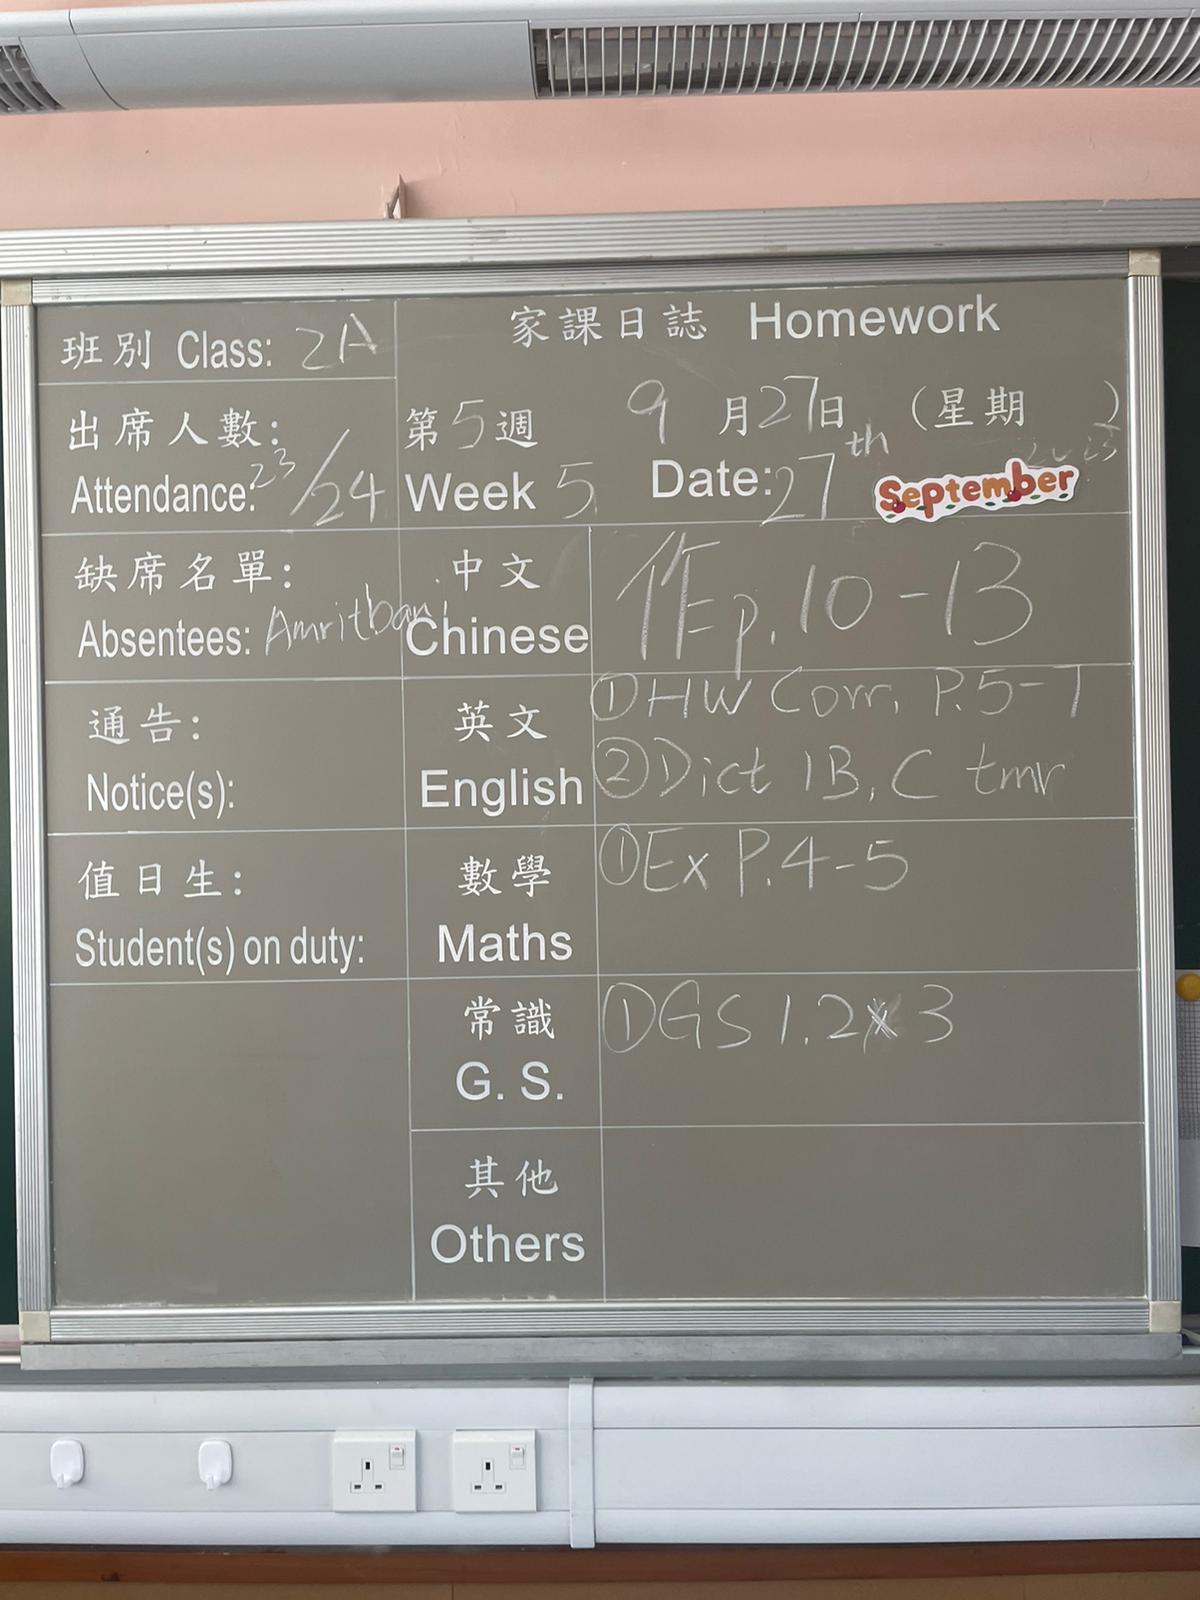 班別 Class: 2A
家課日誌 Homework
出席人數:
Attendance: 23/24
第5週
Week 5
9月27日 (星期 )
Date: 27th September
缺席名單:
Absentees: Amritbani
中文
Chinese
作 p.10-13
通告:
Notice(s):
英文
English
① HW Corr. P.5-7
② Dict 1B, C tmr
值日生:
Student(s) on duty:
數學
Maths
① Ex P.4-5
常識
G. S.
① GS 1.2 3
其他
Others